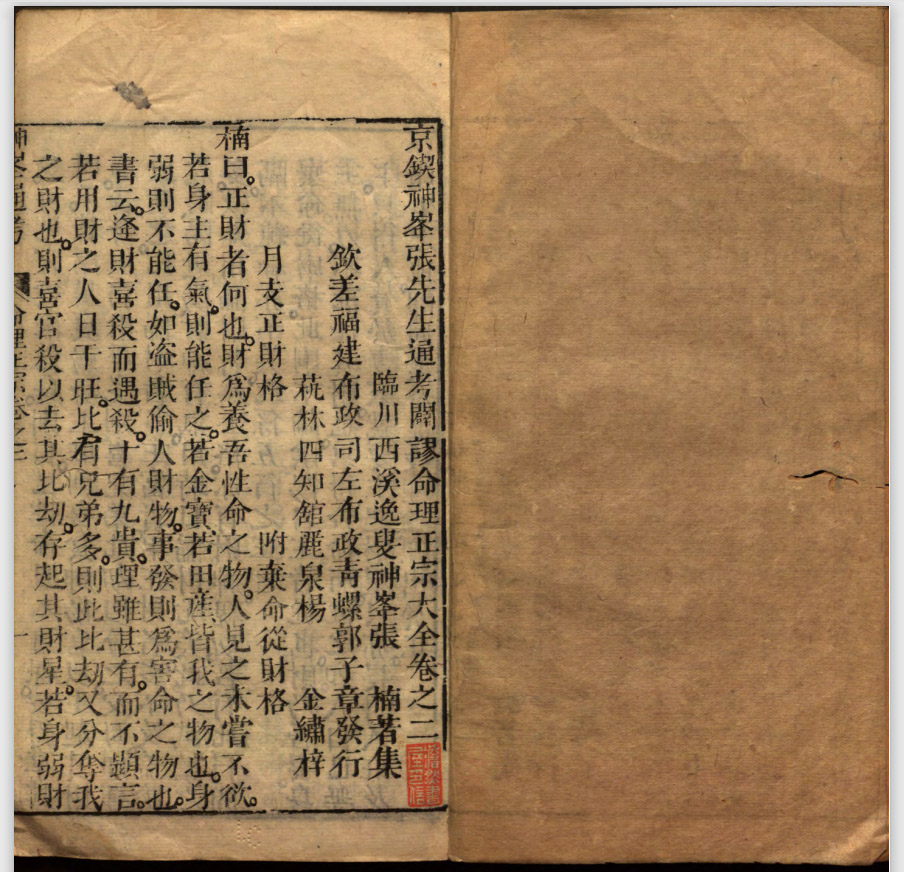 京鍥神峯張先生通考闢謬命理正宗大全卷之二
臨川西溪逸叟神峯張 楠著集
欽差福建布政司左布政青螺郭子章發行
萟林四知舘麗泉楊 金繡梓
月支正財格 附棄命從財格
楠曰。正財者何也。財爲養吾性命之物。人見之未嘗不欲。
若身主有氣。則能任之。若金寶若田産。皆我之物也。身
弱則不能任。如盗賊偷人財物。事發則爲害命之物也。
書云。逢財喜殺而遇殺。十有九貴。理雖甚有。而不顯言。
若用財之人日干旺。比有兄弟多。則此比劫又分奪我
之財也。則喜官殺以去其比劫。存起其財星。若身弱財
神峯通考 命理正宗卷之二 一